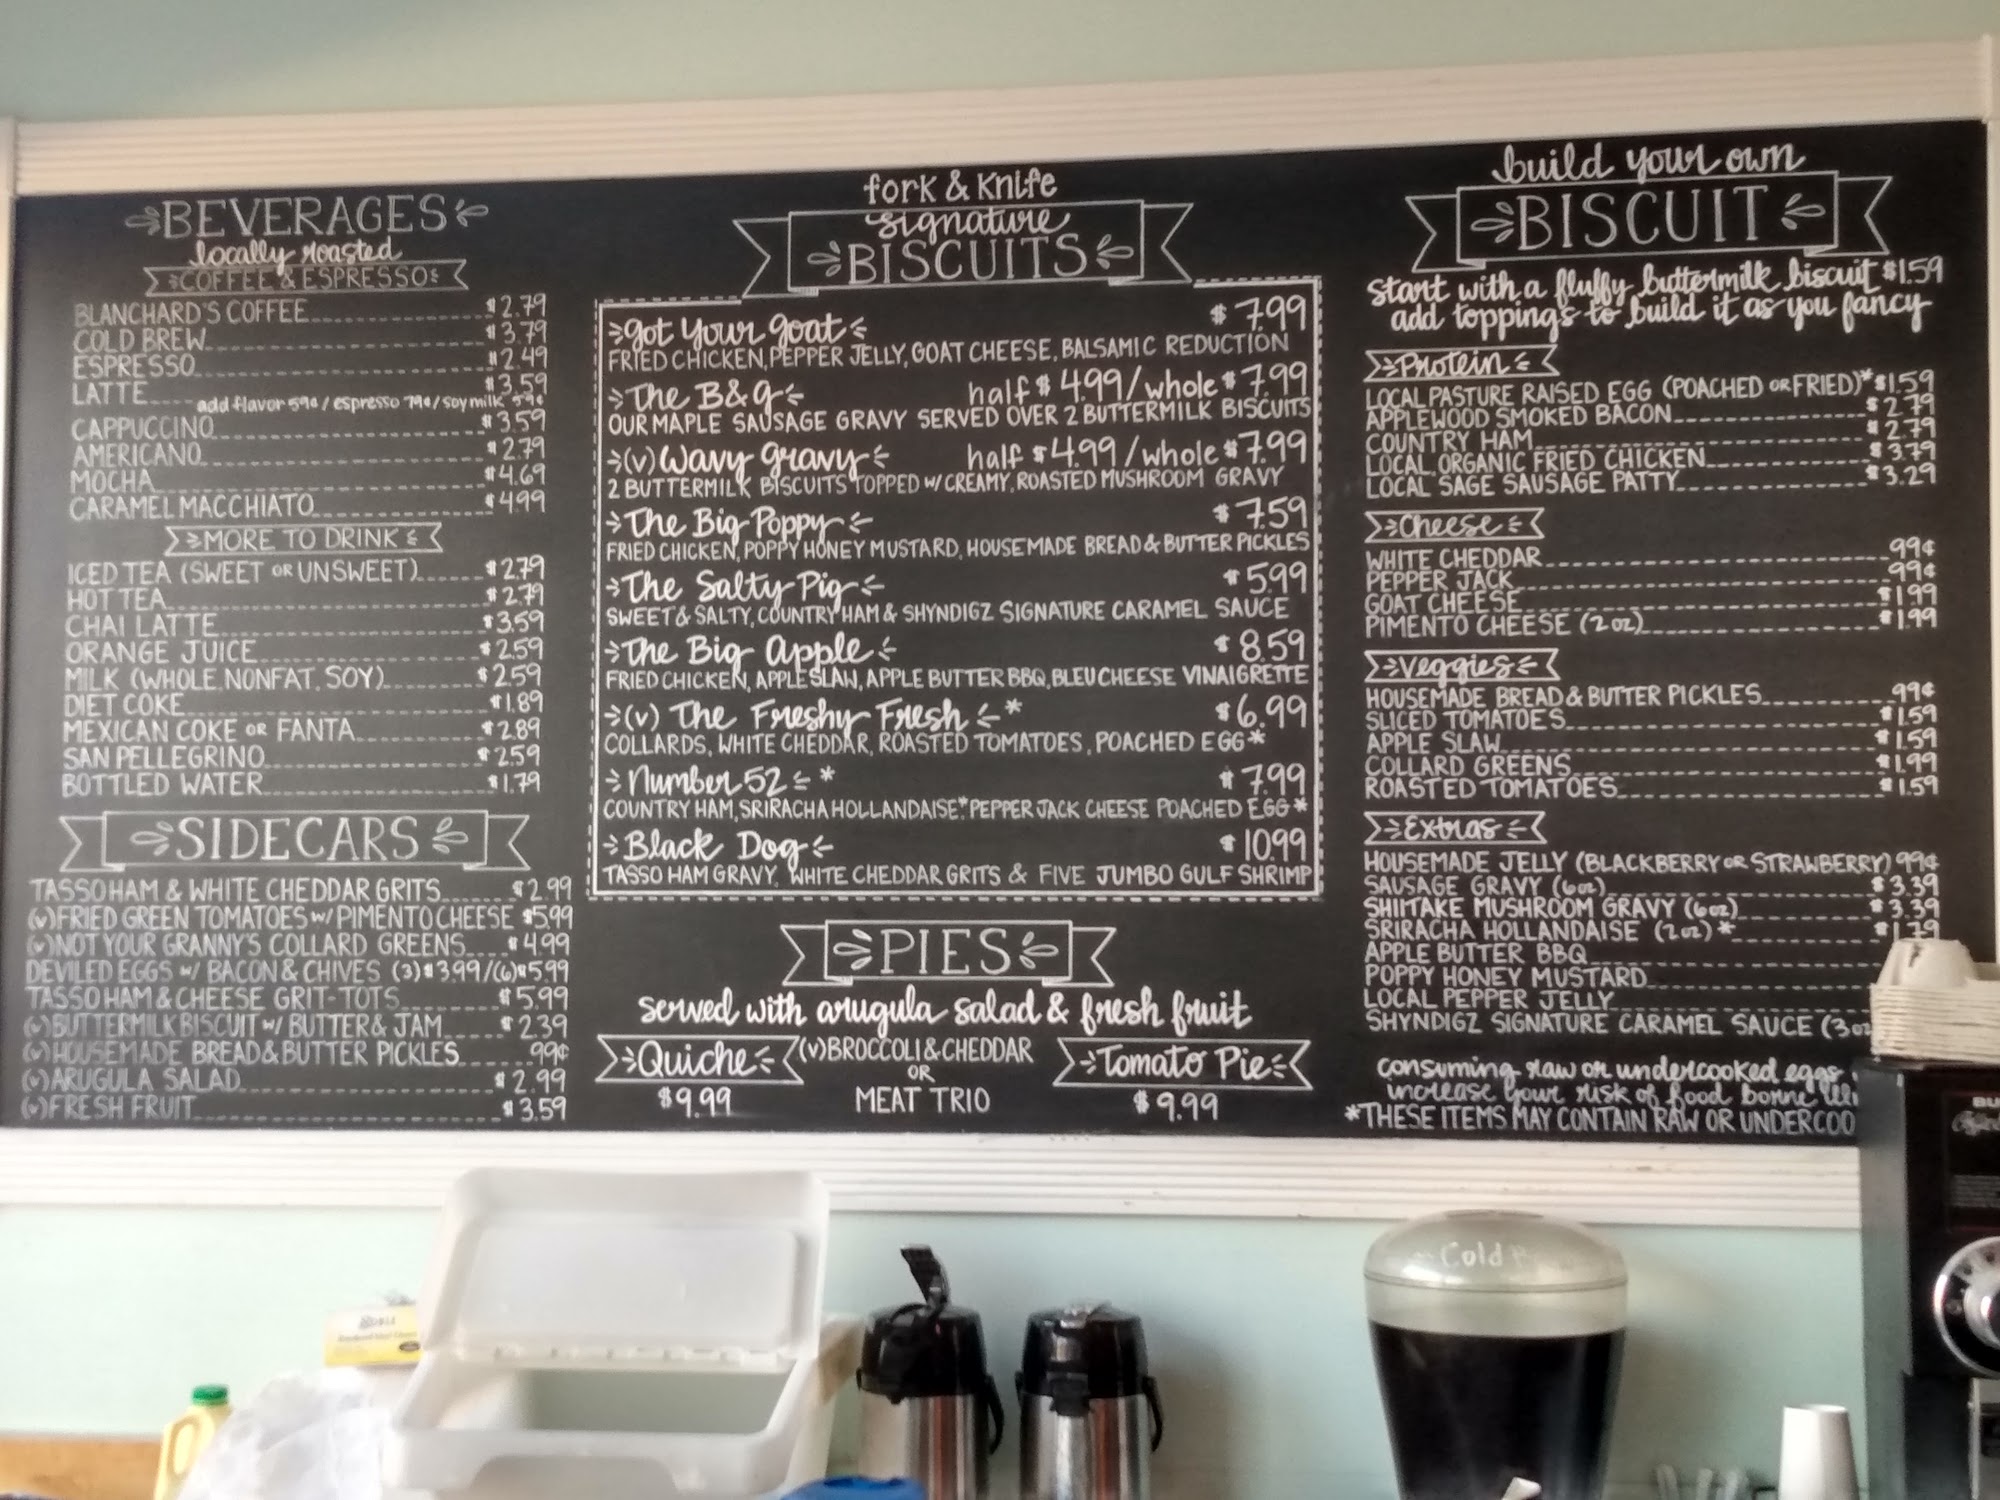 BEVERAGES
locally roasted
COFFEE & ESPRESSO
BLANCHARD'S COFFEE $2.79
COLD BREW $3.79
ESPRESSO $2.49
LATTE $3.59
add flavor 59¢ / espresso 79¢ / soy milk 59¢
CAPPUCCINO $3.59
AMERICANO $2.79
MOCHA $4.69
CARAMEL MACCHIATO $4.99
MORE TO DRINK
ICED TEA (SWEET OR UNSWEET) $2.79
HOT TEA $2.79
CHAI LATTE $3.59
ORANGE JUICE $2.59
MILK (WHOLE, NONFAT, SOY) $2.59
DIET COKE $1.89
MEXICAN COKE OR FANTA $2.89
SAN PELLEGRINO $2.59
BOTTLED WATER $1.79
SIDECARS
TASSO HAM & WHITE CHEDDAR GRITS $2.99
(v) FRIED GREEN TOMATOES w/ PIMENTO CHEESE $5.99
(v) NOT YOUR GRANNY'S COLLARD GREENS $4.99
DEVILED EGGS w/ BACON & CHIVES (3) $3.99 / (6) $5.99
TASSO HAM & CHEESE GRIT-TOTS $5.99
(v) BUTTERMILK BISCUIT w/ BUTTER & JAM $2.39
(v) HOUSEMADE BREAD & BUTTER PICKLES .99¢
(v) ARUGULA SALAD $2.99
(v) FRESH FRUIT $3.59
fork & knife
signature
BISCUITS
got your goat $7.99
FRIED CHICKEN, PEPPER JELLY, GOAT CHEESE, BALSAMIC REDUCTION
The B&G half $4.99 / whole $7.99
OUR MAPLE SAUSAGE GRAVY SERVED OVER 2 BUTTERMILK BISCUITS
(v) Wavy Gravy half $4.99 / whole $7.99
2 BUTTERMILK BISCUITS TOPPED w/ CREAMY, ROASTED MUSHROOM GRAVY
The Big Poppy $7.59
FRIED CHICKEN, POPPY HONEY MUSTARD, HOUSEMADE BREAD & BUTTER PICKLES
The Salty Pig $5.99
SWEET & SALTY, COUNTRY HAM & SHYNDIGZ SIGNATURE CARAMEL SAUCE
The Big Apple $8.59
FRIED CHICKEN, APPLE SLAW, APPLE BUTTER BBQ, BLEU CHEESE VINAIGRETTE
(v) The Freshy Fresh * $6.99
COLLARDS, WHITE CHEDDAR, ROASTED TOMATOES, POACHED EGG*
Number 52 * $7.99
COUNTRY HAM, SRIRACHA HOLLANDAISE*, PEPPER JACK CHEESE POACHED EGG*
Black Dog $10.99
TASSO HAM GRAVY, WHITE CHEDDAR GRITS & FIVE JUMBO GULF SHRIMP
PIES
served with arugula salad & fresh fruit
Quiche (v) BROCCOLI & CHEDDAR
OR
$9.99 MEAT TRIO
Tomato Pie
$9.99
build your own
BISCUIT
start with a fluffy buttermilk biscuit $1.59
add toppings to build it as you fancy
Protein
LOCAL PASTURE RAISED EGG (POACHED OR FRIED)* $1.59
APPLEWOOD SMOKED BACON $2.79
COUNTRY HAM $2.79
LOCAL ORGANIC FRIED CHICKEN $3.79
LOCAL SAGE SAUSAGE PATTY $3.29
Cheese
WHITE CHEDDAR .99¢
PEPPER JACK .99¢
GOAT CHEESE $1.99
PIMENTO CHEESE (2 oz) $1.99
Veggies
HOUSEMADE BREAD & BUTTER PICKLES .99¢
SLICED TOMATOES $1.59
APPLE SLAW $1.59
COLLARD GREENS $1.99
ROASTED TOMATOES $1.59
Extras
HOUSEMADE JELLY (BLACKBERRY OR STRAWBERRY) 99¢
SAUSAGE GRAVY (6oz) $3.39
SHIITAKE MUSHROOM GRAVY (6oz) $3.39
SRIRACHA HOLLANDAISE (2oz)* $1.79
APPLE BUTTER BBQ
POPPY HONEY MUSTARD
LOCAL PEPPER JELLY
SHYNDIGZ SIGNATURE CARAMEL SAUCE (3oz
consuming raw or undercooked eggs
increase your risk of food borne
*THESE ITEMS MAY CONTAIN RAW OR UNDERCOO
Cold
BU